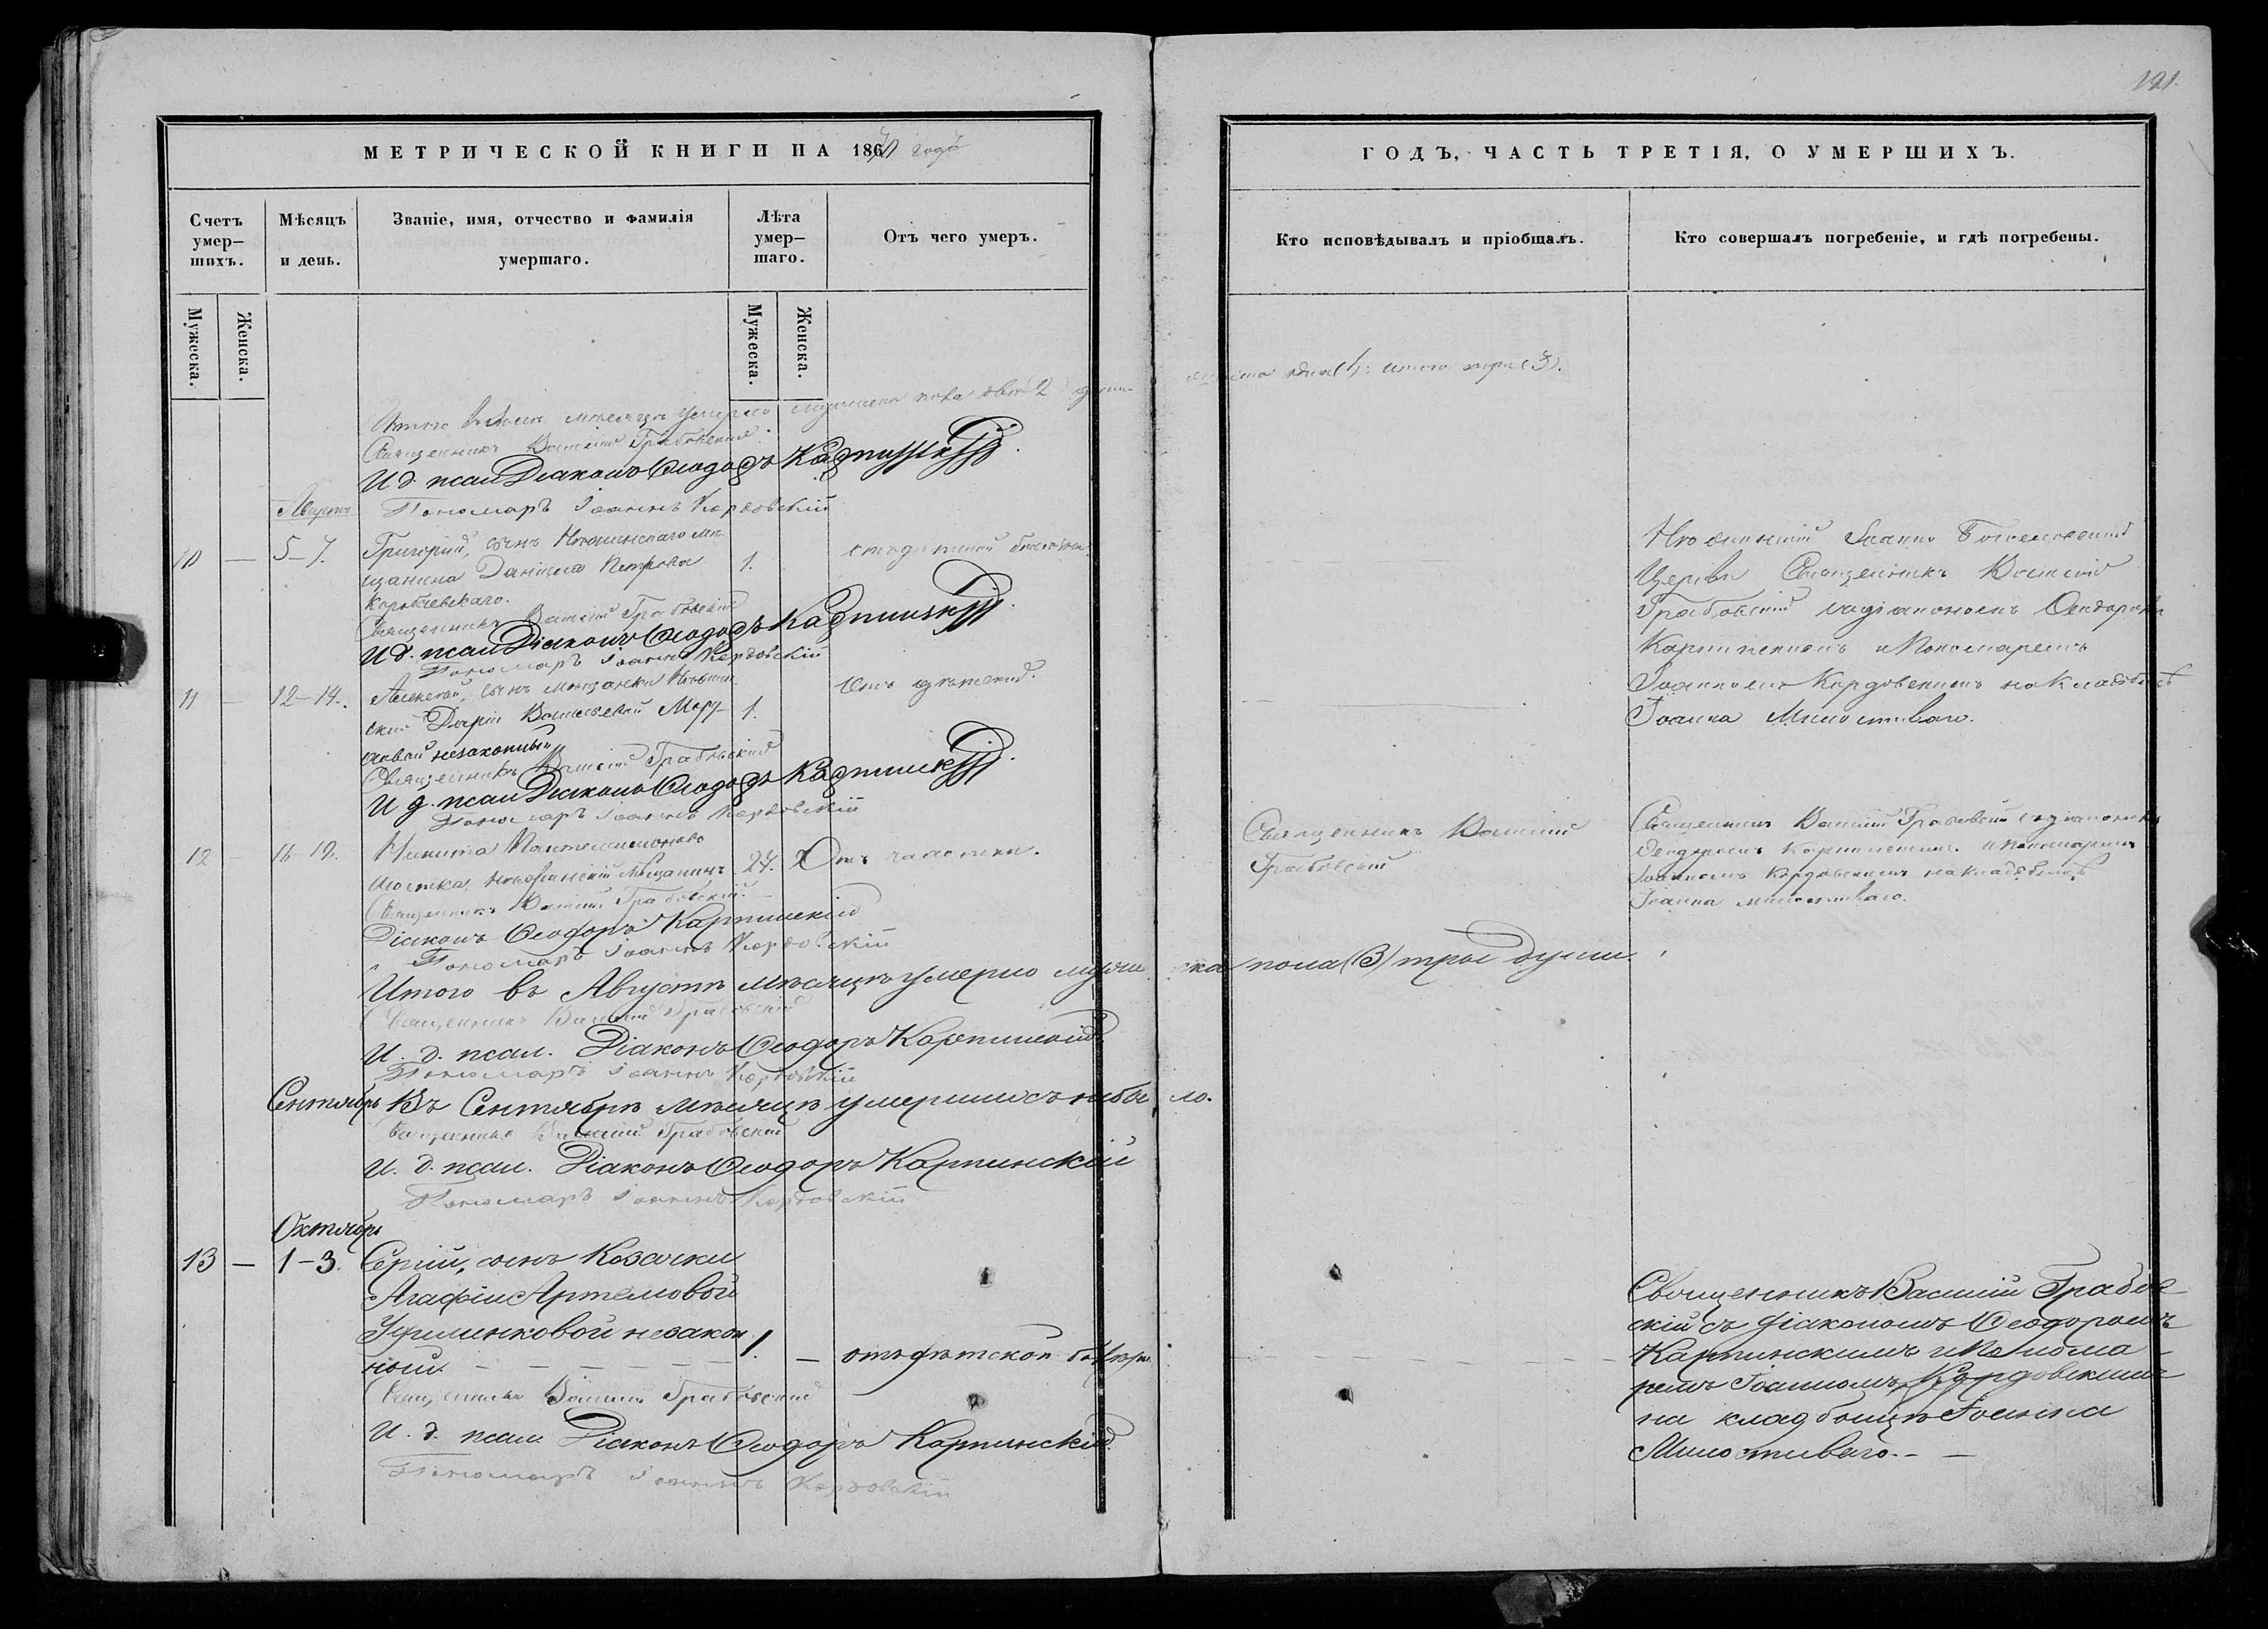 191.
МЕТРИЧЕСКОЙ КНИГИ НА 1870 годъ
ГОДЪ, ЧАСТЬ ТРЕТІЯ, О УМЕРШИХЪ.
Счетъ умер–шихъ.
Мѣсяцъ и день.
Званіе, имя, отчество и фамилія умершаго.
Лѣта умер–шаго.
Отъ чего умеръ.
Кто исповѣдывалъ и пріобщалъ.
Кто совершалъ погребеніе, и гдѣ погребены.
Мужеска.
Женска.
Мужеска.
Женска.
Итого въ мѣсяцѣ умерло пола двѣ (2)
одна (1): итого три (3).
Священникъ Василій Грабовскій
И д. псал Діаконъ Ѳеодоръ Карпинскій
Августъ Пономаръ Іоаннъ Кордовскій
10 — 5–7. Григорій, сынъ мѣ
щанина Даніила Петрова 1.
Священникъ Василій Грабовскій
И д. псал Діаконъ Ѳеодоръ Карпинскій
Пономаръ Іоаннъ Кордовскій
Іоанно Богословской
Церкви Священникъ Василій
Грабовскій съ діакономъ Ѳеодоромъ
Карпинскимъ и Пономаремъ
Іоанномъ Кордовскимъ на кладбищѣ
Іоанна Милостиваго.
11 — 12–14. Алексѣй, сынъ мѣщанки
Даріи Васильевой 1.
незаконный
Священникъ Василій Грабовскій
И д. псал Діаконъ Ѳеодоръ Карпинскій
Пономаръ Іоаннъ Кордовскій
12 — 16–19. Никита Пантелеимоновъ
мѣщанинъ 27. Отъ чахотки.
Священникъ Василій Грабовскій.
Діаконъ Ѳеодоръ Карпинскій
Пономаръ Іоаннъ Кордовскій
Священникъ Василій
Грабовскій
Священникъ Василій Грабовскій съ діакономъ
Ѳеодоромъ Карпинскимъ и Пономаремъ
Іоанномъ Кордовскимъ на кладбищѣ
Іоанна милостиваго.
Итого въ Августѣ мѣсяцѣ умерло мужеска пола (3) три души.
Священникъ Василій Грабовскій
И. д. псал. Діаконъ Ѳеодоръ Карпинскій
Пономаръ Іоаннъ Кордовскій
Сентябрь Въ Сентябрѣ мѣсяцѣ умершихъ небыло.
Священникъ Василій Грабовскій
И. д. псал. Діаконъ Ѳеодоръ Карпинскій
Пономаръ Іоаннъ Кордовскій
Октябрь
13 — 1–3. Сергій, сынъ Козачки
Агафіи Артемовой
незакон
ный — — — — — 1. — отъ дѣтской
Священникъ Василій Грабовскій
И. д. псал Діаконъ Ѳеодоръ Карпинскій
Пономаръ Іоаннъ Кордовскій
Священникъ Василій Грабов
скій съ діакономъ Ѳеодоромъ
Карпинскимъ и Понома
ремъ Іоанномъ Кордовскимъ
на кладбищѣ Іоанна
Милостиваго. — —